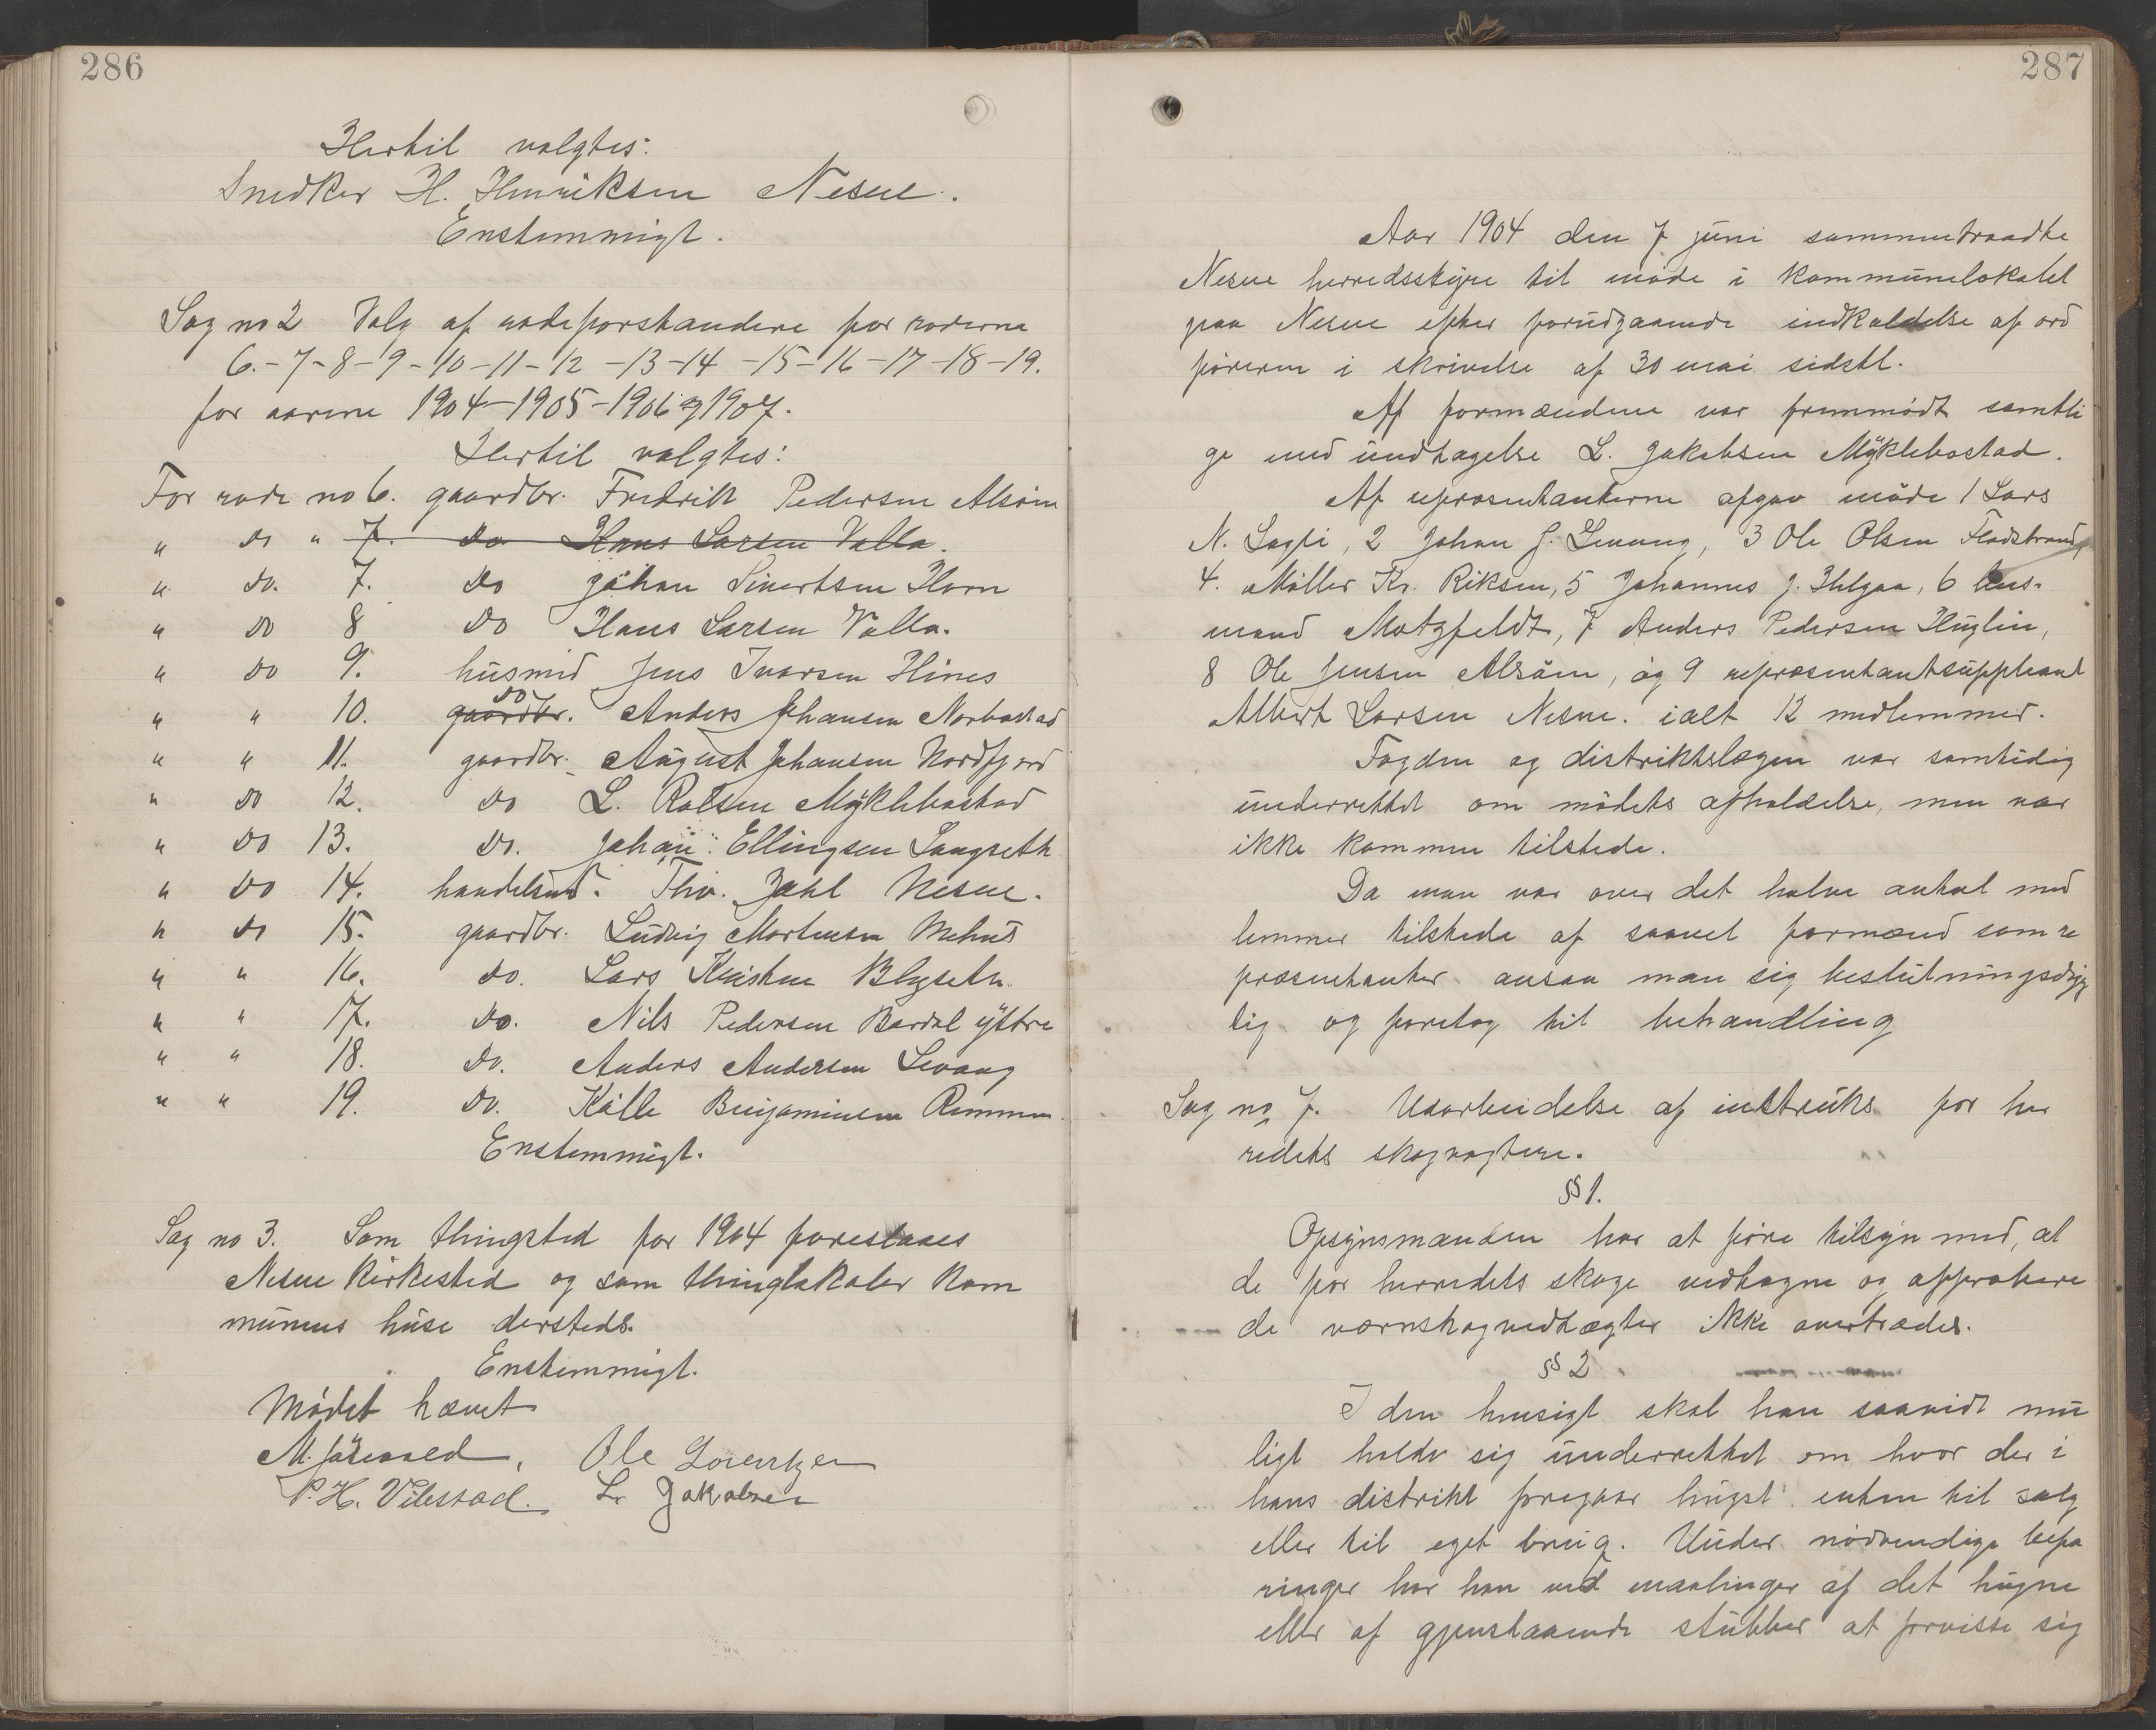 286
Hertil valgtes:
Snedker H. Henriksen Nesne.
Enstemmigt.
Sag no 2 Valg af rodeforstandere for roderne
6.-7-8-9-10-11-12-13-14-15-16-17-18-19.
for aarene 1904-1905-1906 og 1907.
Hertil valgtes:
For rode no 6. gaardbr. Fredrik Pedersen Alsöen
" do " 7. do Hans Larsen Valla.
" do. 7. do Johan Sivertsen Horn
" do 8 do Hans Larsen Valla.
" do 9. husmd Jens Ivarsen Hines
" " 10. gaardbr. do Anders Johansen Norbostad
" " 11. gaardbr. August Johansen Nordfjord
" do 12. do L. Rolsen Myklebostad
" do 13. do. Johan Ellingsen Langseth
" do 14. handelsmd. Thv. Zahl Nesne.
" do 15. gaardbr. Ludvig Mortensen Mehus
" " 16. do. Lars Kristen
" " 17. do. Nils Pedersen Bardal yttre
" " 18. do. Anders Andersen Levang
" " 19. do. Källe Benjaminsen Remmen.
Enstemmigt.
Sag no 3. Som thingsted for 1904 forestaaes
Nesne kirkested og som thinglokaler kom
munens huse dersteds.
Enstemmigt.
Mödet hævet
Ole Lorentzen
L. Jakobsen
287
Aar 1904 den 7 juni sammentraadte
Nesne herredsstyre til möde i kommunelokalet
paa Nesne efter forudgaaende indkaldelse af ord
föreren i skrivelse af 30 mai sidstl.
Af formændene var fremmödt samtli
ge med undtagelse L. Jakobsen Myklebostad.
Af repræsentanterne afgav möde 1 Lars
N. Sagfi, 2 Johan J. Levang, 3 Ole Olsen Fladstrand,
4. Möller Kr. Riksen, 5 Johannes J. Helgaa, 6 lens-
mand Motzfeldt, 7 Anders Pedersen Huglen,
8 Ole Jensen Alsöen, og 9 repræsentantsuppleant
Albert Larsen Nesne. ialt 12 medlemmer.
Fogden og distriktslægen var samtidig
underrettet om mödets afholdelse, men var
ikke kommen tilstede.
Da man var over det halve antal med
lemmer tilstede af saavel formænd som re
præsentanter ansaa man sig beslutningsdyg
tig og foretog til behandling
Sag no 7. Udarbeidelse af instruks for her
redets skogvogtere.
§§ 1.
Opsynsmanden har at före tilsyn med, at
de for herredets skoge vedtagne og approbere
de vernskogvedtægter ikke overtrædes.
§§ 2
I den hensigt skal han saavidt mu
ligt holde sig underrettet om hvor der i
hans distrikt foregaar hugst enten til salg
eller til eget brug. Under nödvendige befa
ringer har han ved maalinger af det hugne
eller af gjenstaaende stubber at forvisse sig